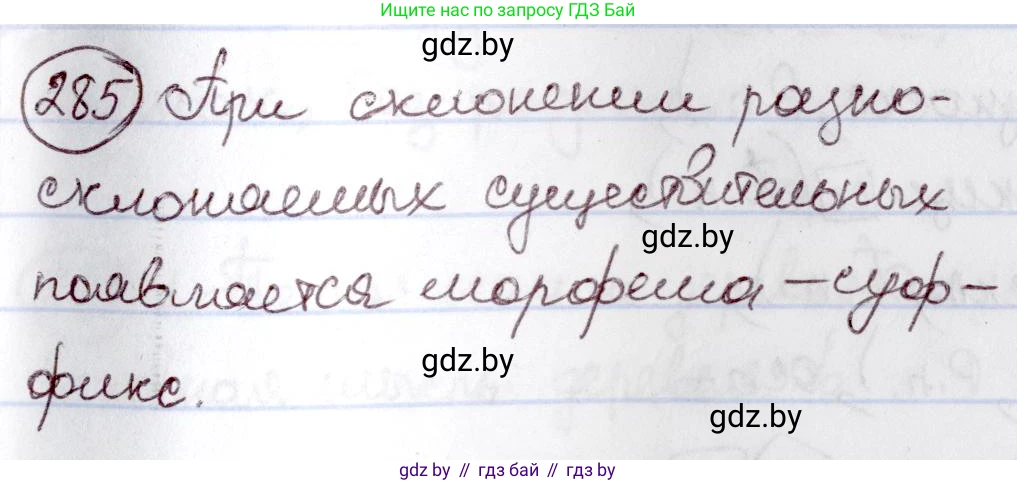 Ищите нас по запросу ГДЗ Бай
gdz.by
285 При склонении разно-
склоняемых существительных
gdz.by
появляется морфема – суф-
gdz.by
фикс.
gdz.by
gdz by // гдз бай // гдз by